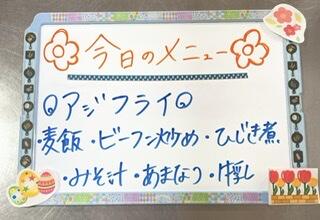 今日のメニュー
◎アジフライ◎
・麦飯・ビーフン炒め・ひじき煮
・みそ汁・あまなつ・